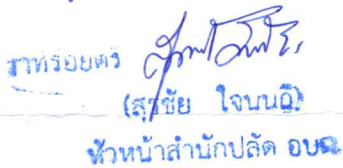 ว่าที่ร้อยตรี
(สุรชัย ใจนนถีย์)
หัวหน้าสำนักปลัด อบต.